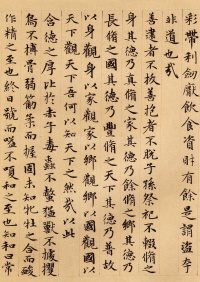 彩帶利劍厭飲食資財有餘是謂盜夸
非道也哉
善建者不拔善抱者不脫子孫祭祀不輟脩之
身其德乃真脩之家其德乃餘脩之鄉其德乃
長脩之國其德乃豐脩之天下其德乃普故
以身觀身以家觀家以鄉觀鄉以國觀國以
天下觀天下吾何以知天下之然哉以此
含德之厚比於赤子毒蟲不螫猛獸不據攫
鳥不搏骨弱筋柔而握固未知牝牡之合而
作精之至也終日號而嗌不嗄和之至也知和曰常